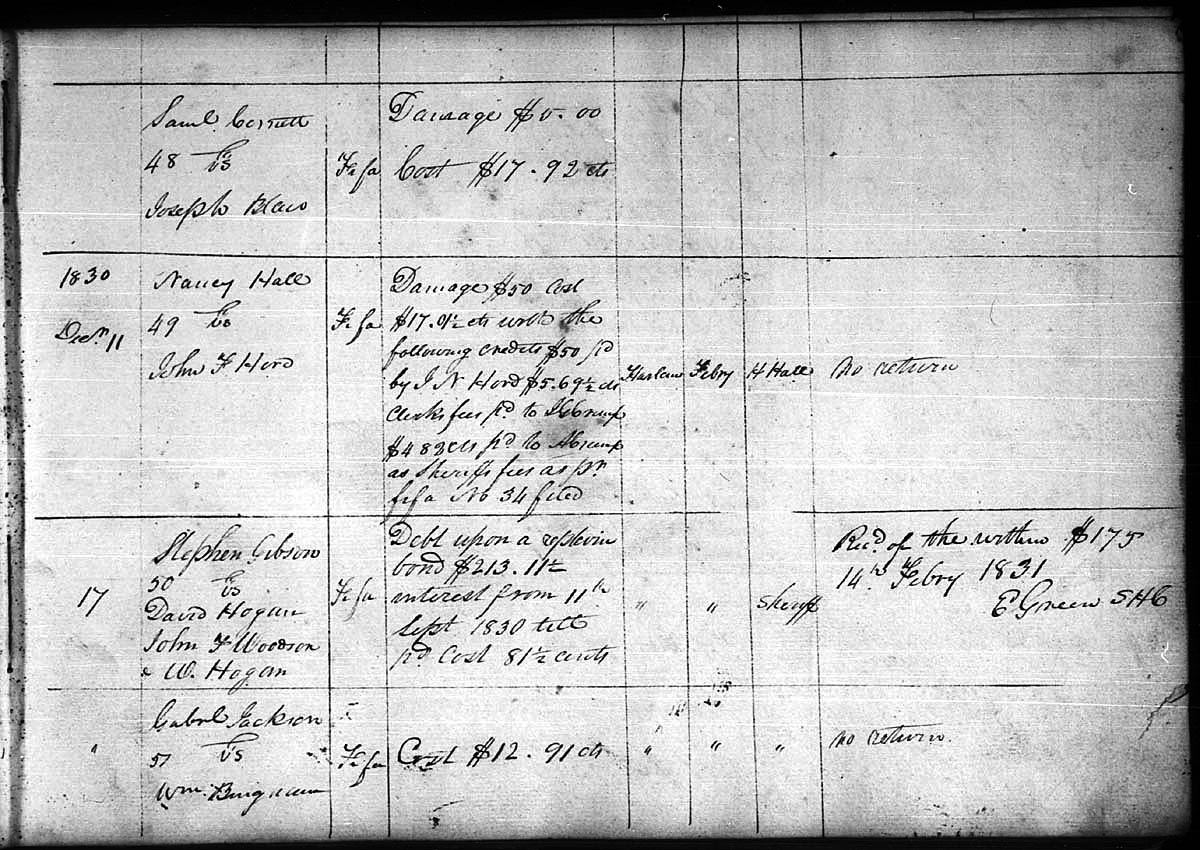 Saml. Cornett
48 vs
Joseph Blair
Fi fa
Damage $0.00
Cost $17.92 cts
1830
Decr 11
Nancy Hall
49 vs
John F Hord
Fi fa
Damage $50 Cost
$17.01½ cts with the
following credits $50 pd
by J N Hord $5.69½ cts
Clerks fees pd. to
$4 82 cts pd to
as Sheriffs fees as pr
fi fa No 34 filed
Harlan
Febry
H Hall
No return
17
Stephen Gibson
50 vs
David Hogan
John F Woodson
& W. Hogan
Fi fa
Debt upon a replevin
bond $213.11½
interest from 11th
Sept 1830 till
pd Cost 81½ cents
"
"
Sheriff
Recd. of the within $175
14th Febry 1831
E Green S H C
"
Gabrl Jackson
51 vs
Wm. Bingham
Fi fa
Cost $12.91 cts
"
"
"
No return.